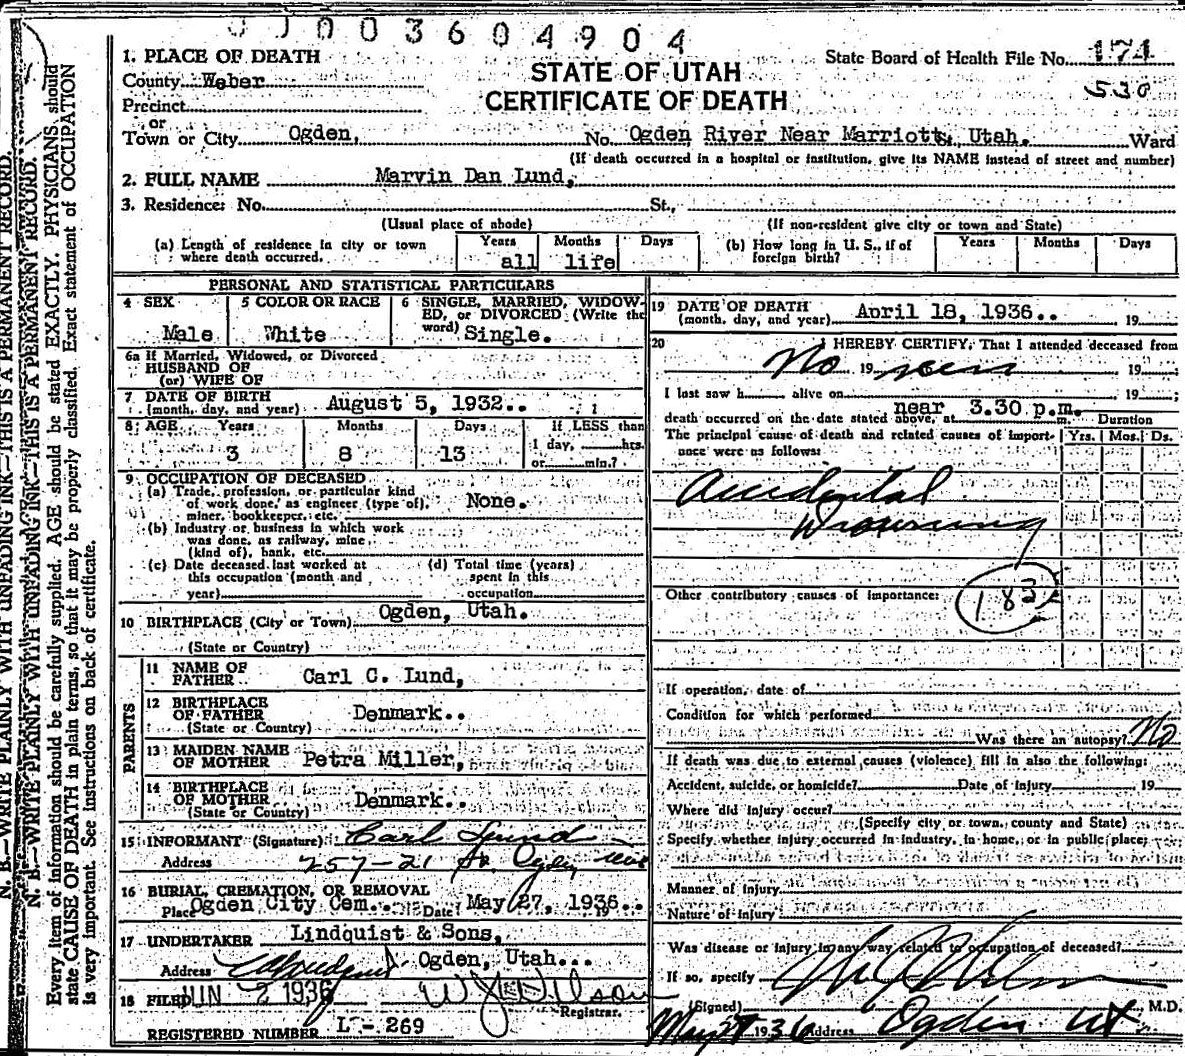 003604904
1. PLACE OF DEATH
State Board of Health File No. 174
County Weber
STATE OF UTAH
530
Precinct
CERTIFICATE OF DEATH
or
Town or City Ogden, No. Ogden River Near Marriott, Utah. Ward
(If death occurred in a hospital or institution, give its NAME instead of street and number)
2. FULL NAME Marvin Dan Lund,
3. Residence: No. St.,
(Usual place of abode) (If non-resident give city or town and State)
(a) Length of residence in city or town where death occurred. Years all Months life Days
(b) How long in U. S., if of foreign birth? Years Months Days
PERSONAL AND STATISTICAL PARTICULARS
4 SEX Male
5 COLOR OR RACE White
6 SINGLE, MARRIED, WIDOW-
ED, or DIVORCED (Write the
word) Single.
6a If Married, Widowed, or Divorced
HUSBAND OF
(or) WIFE OF
7 DATE OF BIRTH
(month, day, and year) August 5, 1932..
8 AGE Years Months Days If LESS than
3 8 13 1 day, hrs.
or min.?
9 OCCUPATION OF DECEASED
(a) Trade, profession, or particular kind
of work done, as engineer (type of), None.
miner, bookkeeper, etc.
(b) Industry or business in which work
was done, as railway, mine
(kind of), bank, etc.
(c) Date deceased last worked at
this occupation (month and
year)
(d) Total time (years)
spent in this
occupation
10 BIRTHPLACE (City or Town) Ogden, Utah.
(State or Country)
PARENTS
11 NAME OF
FATHER Carl C. Lund,
12 BIRTHPLACE
OF FATHER Denmark..
(State or Country)
13 MAIDEN NAME
OF MOTHER Petra Miller,
14 BIRTHPLACE
OF MOTHER Denmark..
(State or Country)
15 INFORMANT (Signature) Carl Lund
Address 257-21 St. Ogden
16 BURIAL, CREMATION, OR REMOVAL
Place Ogden City Cem.. Date May 27, 1936.. 19
17 UNDERTAKER Lindquist & Sons,
Address Ogden, Utah...
18 FILED JUN 2 1936 W J Wilson
Registrar.
REGISTERED NUMBER L - 269
19 DATE OF DEATH
(month, day, and year) April 18, 1936.. 19
20 I HEREBY CERTIFY, That I attended deceased from
No 19 19 ;
I last saw h alive on 19 ;
near 3.30 p.m.
death occurred on the date stated above, at m. Duration
The principal cause of death and related causes of import- Yrs. Mos. Ds.
ance were as follows:
Accidental
Drowning
Other contributory causes of importance: 183
If operation, date of
Condition for which performed
Was there an autopsy? No
If death was due to external causes (violence) fill in also the following:
Accident, suicide, or homicide? Date of injury 19
Where did injury occur?
(Specify city or town, county and State)
Specify whether injury occurred in industry, in home, or in public place;
Manner of injury
Nature of injury
Was disease or injury in any way related to occupation of deceased?
If so, specify
(Signed) , M.D.
May 27 1936 Address Ogden Ut.
N. B.—WRITE PLAINLY WITH UNFADING INK—THIS IS A PERMANENT RECORD.
N. B.—WRITE PLAINLY WITH UNFADING INK—THIS IS A PERMANENT RECORD.
Every item of information should be carefully supplied. AGE should be stated EXACTLY. PHYSICIANS should
state CAUSE OF DEATH in plain terms, so that it may be properly classified. Exact statement of OCCUPATION
is very important. See instructions on back of certificate.